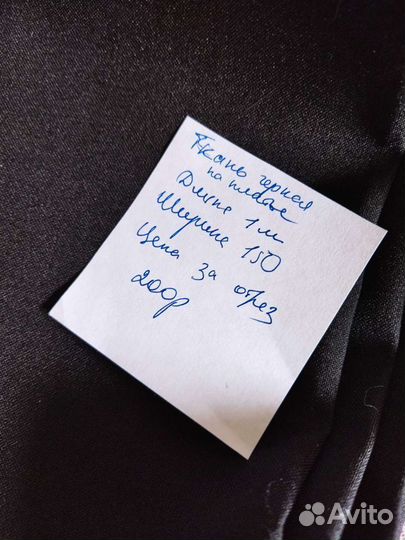 Ткань черная
на платье
Длина 1 м
Ширина 150
Цена за отрез
200р
Avito